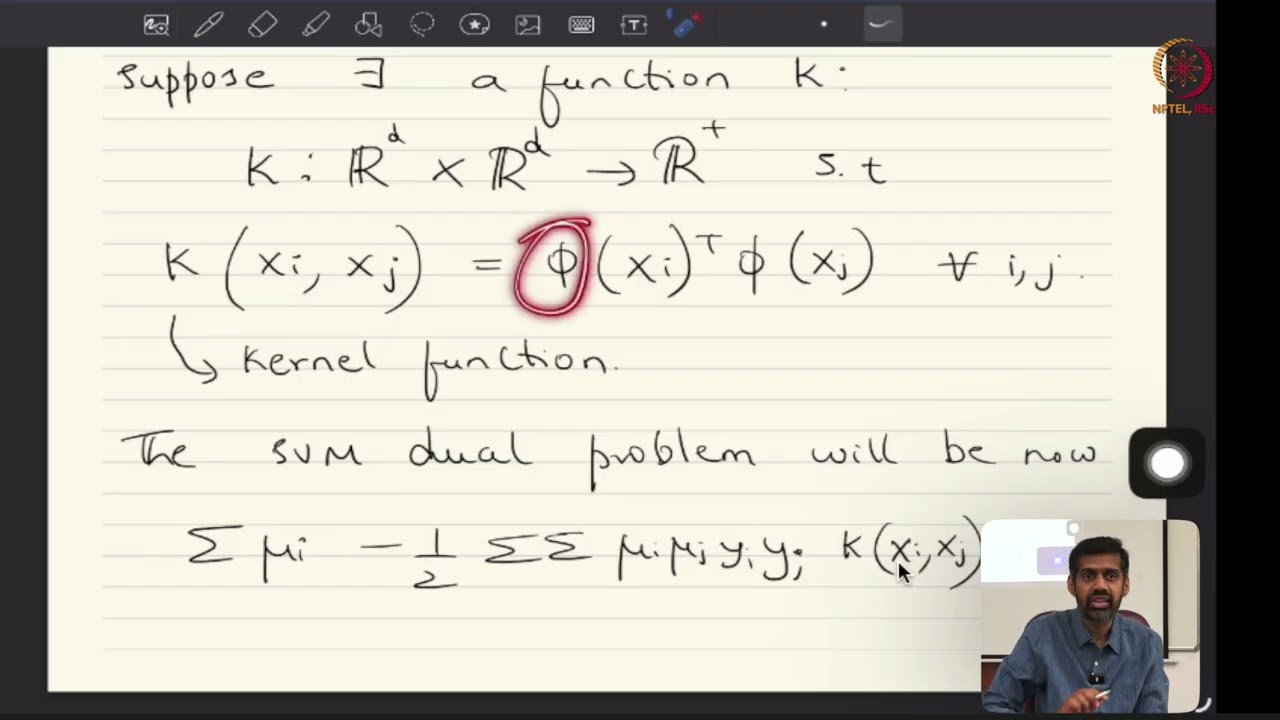 suppose ∃ a function K:
K : ℝᵈ × ℝᵈ → ℝ⁺ s.t
K (xi, xj) = ϕ(xi)ᵀ ϕ(xj) ∀ i,j.
↳ Kernel function.
The SVM dual problem will be now
Σ μi - 1/2 ΣΣ μi μj yi yj K(xi, xj)
NPTEL, IISc